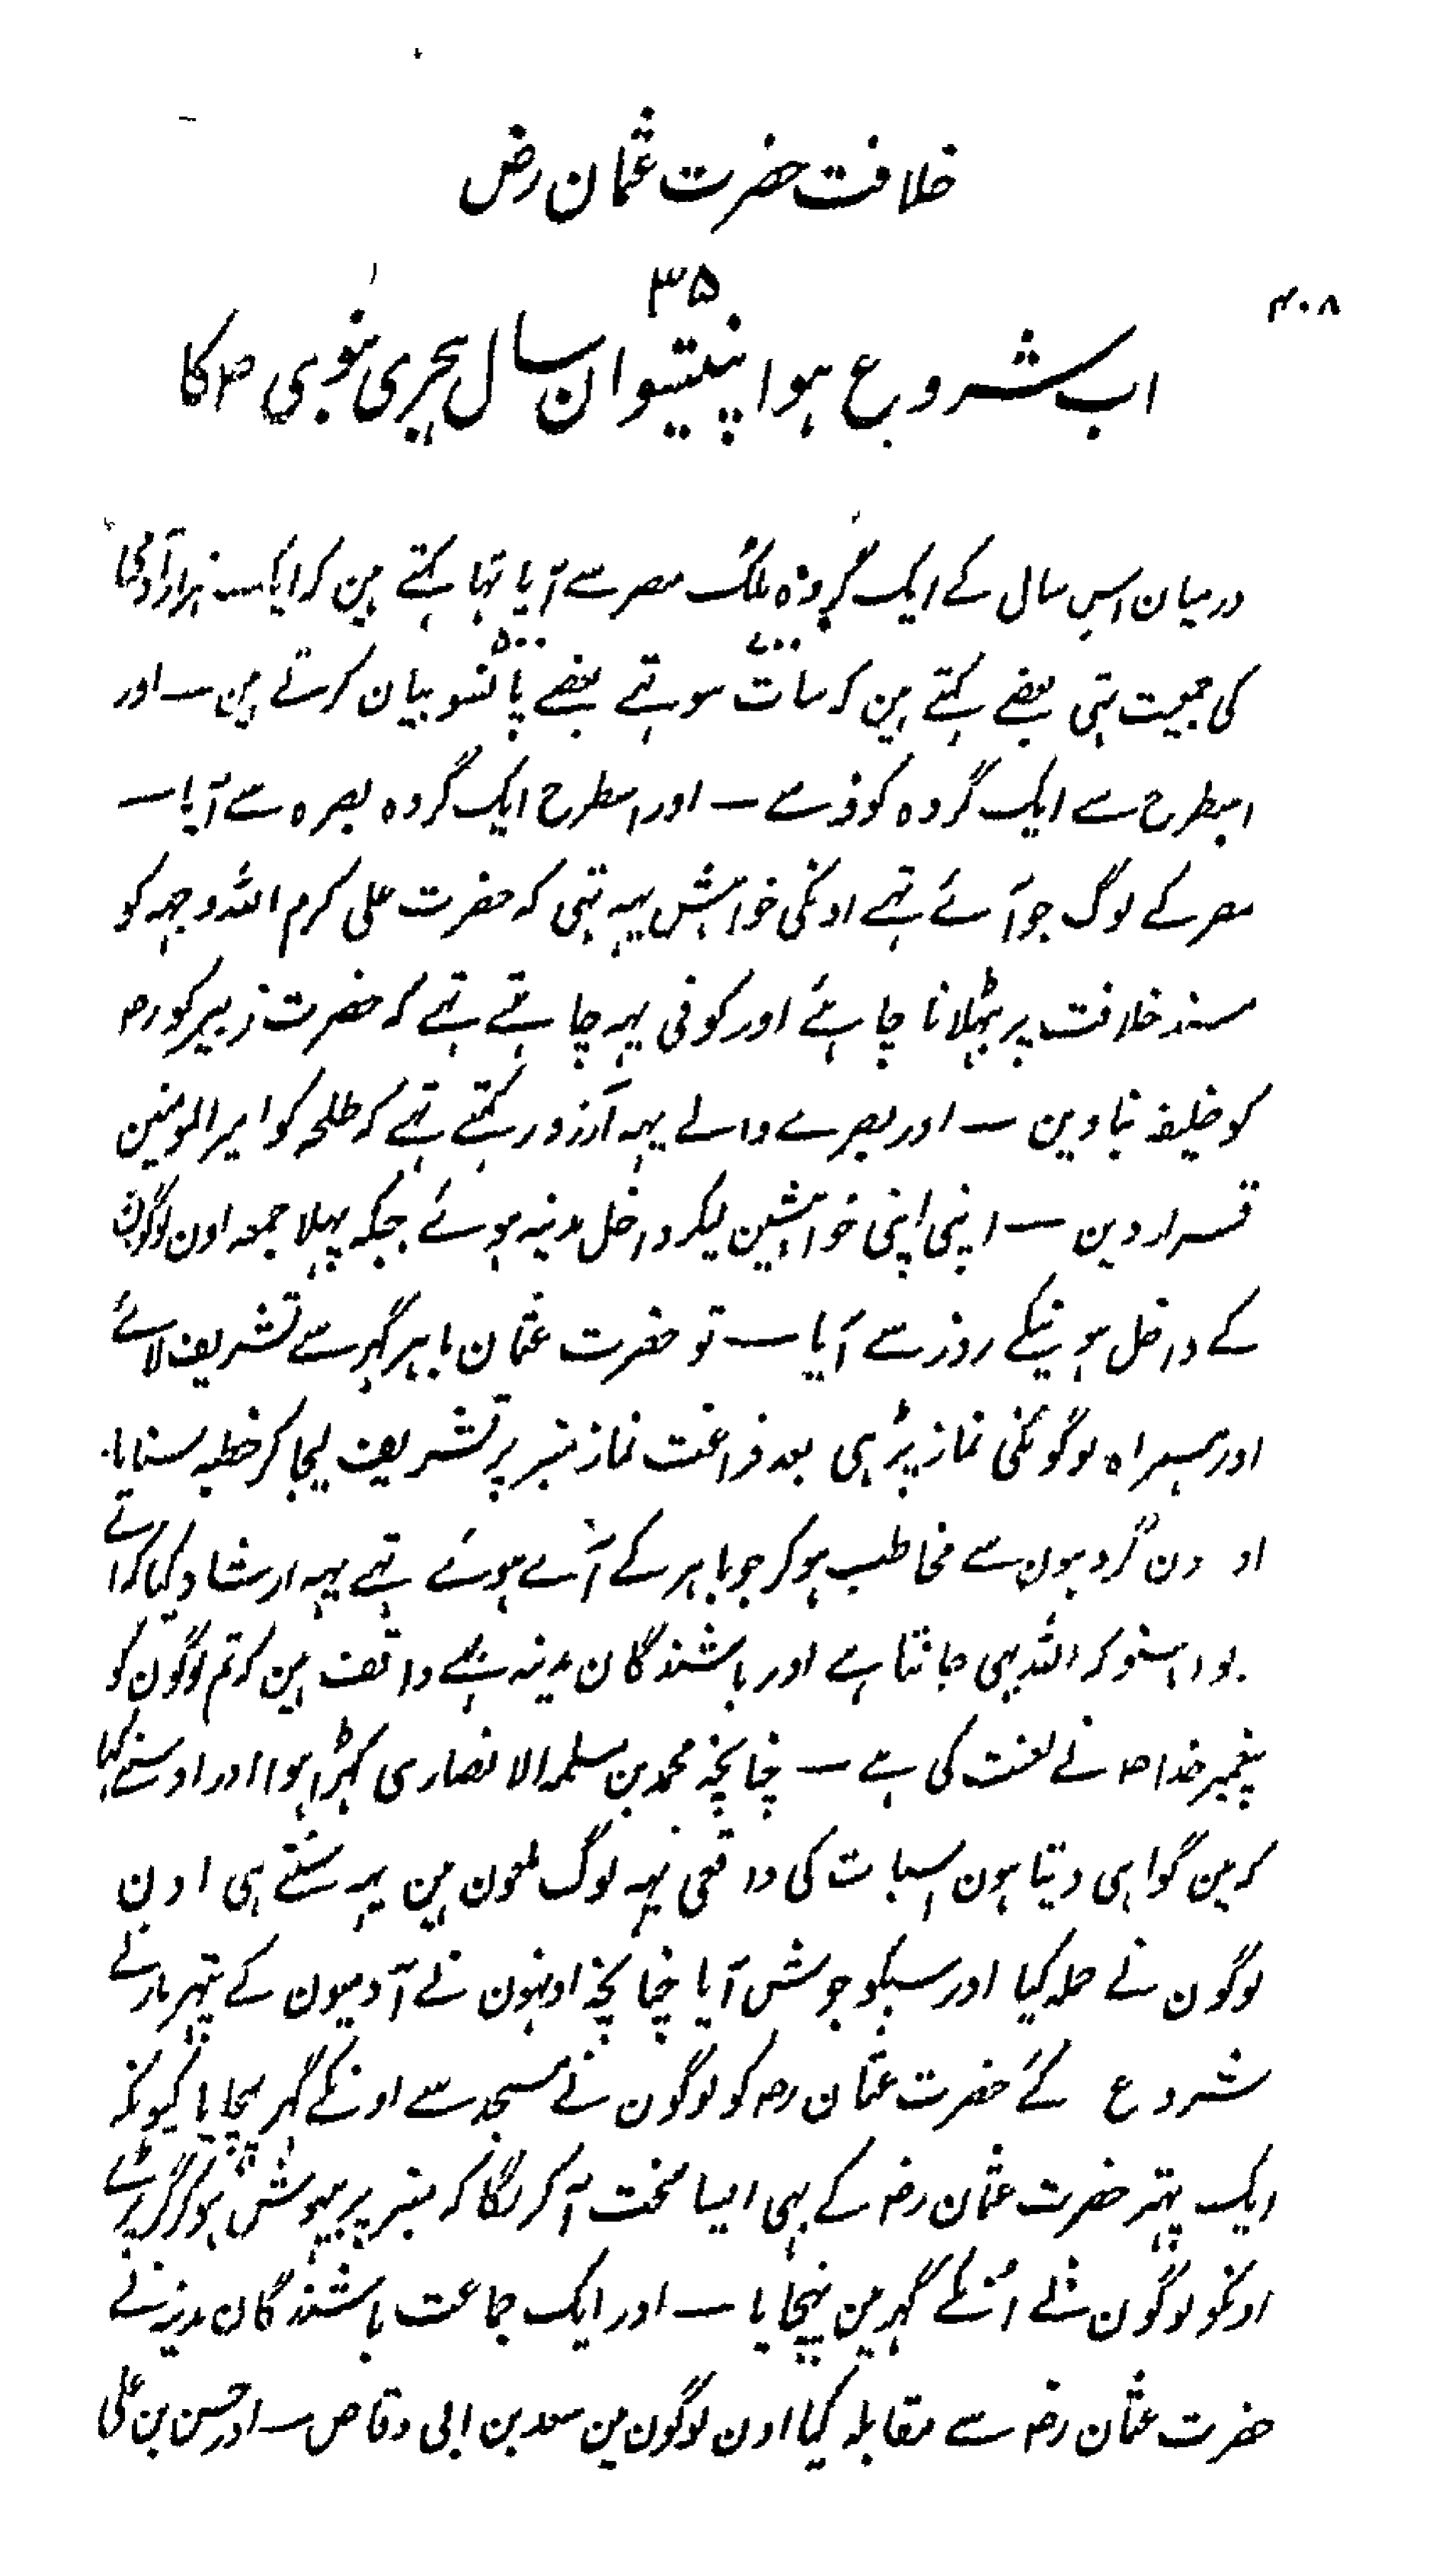 خلافت حضرت عثمان رض
۴۰۸
۳۵
اب شروع ہوا پنتیسوان سال ہجری نبوی ص کا
درمیان اس سال کے ایک گروہ ملک مصر سے آیا تہا کہتے ہین کہ ایک ہزار آدمی
۷۰۰ ۵۰۰
کی جمیعت تہی بعضے کہتے ہین کہ سات سو تہے بعضے پانسو بیان کرتے ہین ۔ اور
اسطرح سے ایک گروہ کوفہ سے ۔ اور اسطرح ایک گروہ بصرہ سے آیا ۔
مصر کے لوگ جو آئے تہے اونکی خواہش یہہ تہی کہ حضرت علی کرم اللہ وجہہ کو
مسند خلافت پر بٹہلانا چاہئے اور کوفی یہہ چاہتے تہے کہ حضرت زبیر کو رض
کو خلیفہ بنادین ۔ اور بصرے والے یہہ آرزو رکہتے تہے کہ طلحہ کو امیر المومنین
قرار دین ۔ اپنی اپنی خواہشین لیکر داخل مدینہ ہوئے جبکہ پہلا جمعہ اون لوگون
کے داخل ہونیکے روز سے آیا ۔ تو حضرت عثمان باہر گہر سے تشریف لائے
اور ہمراہ لوگونکی نماز پڑہی بعد فراغت نماز منبر پر تشریف لیجا کر خطبہ سنایا
اور ون گروہون سے مخاطب ہوکر جو باہر کے آئے ہوئے تہے یہہ ارشاد کیا کہ اتے
لو اسنو کہ اللہ ہی جانتا ہے اور باشندگان مدینہ بہی واقف ہین کہ تم لوگون کو
پیغمبر خدا ص نے لعنت کی ہے ۔ چنانچہ محمد بن مسلمہ الانصاری کہڑا ہوا اور اوسنے کہا
کہ مین گواہی دیتا ہون اسبات کی واقعی یہہ لوگ ملعون ہین یہہ سنتے ہی اون
لوگون نے حملہ کیا اور سبکو جوش آیا چنانچہ اونہون نے آدمیون کے پتہر مارنے
شروع کئے حضرت عثمان رض کو لوگون نے مسجد سے اونکے گہر پہنچایا کیونکہ
ایک پتہر حضرت عثمان رض کے بہی ایسا سخت آکر لگا کہ منبر پر بیہوش ہوکر گر پڑے
اونکو لوگون نے اُنکے گہر مین پہنچایا ۔ اور ایک جماعت باشندگان مدینہ نے
حضرت عثمان رض سے مقابلہ کیا اون لوگون مین سعد بن ابی وقاص ۔ اور حسن بن علی